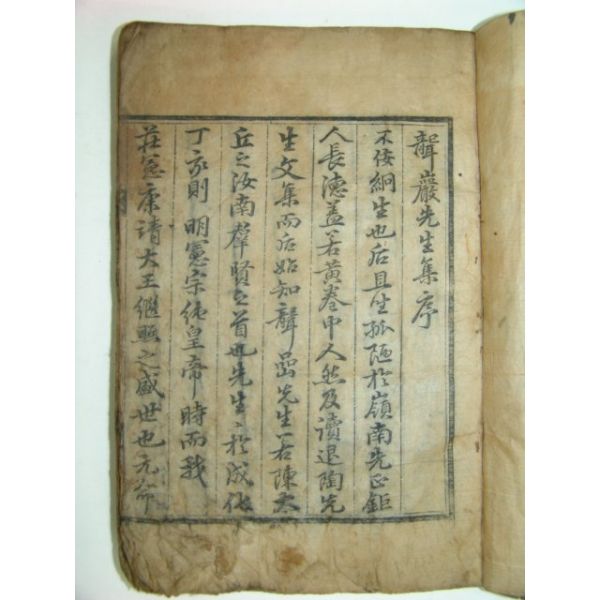 聾巖先生集序
不佞絅生也后且生孤陋於嶺南先正鉅
人長德盖若黃卷中人然及讀退陶先
生文集而后始知聾嵒先生若陳太
丘之汝南群賢之首也先生生於成化
丁亥則明憲宗純皇帝時而我
莊憲康靖大王繼熙之盛世也元帝